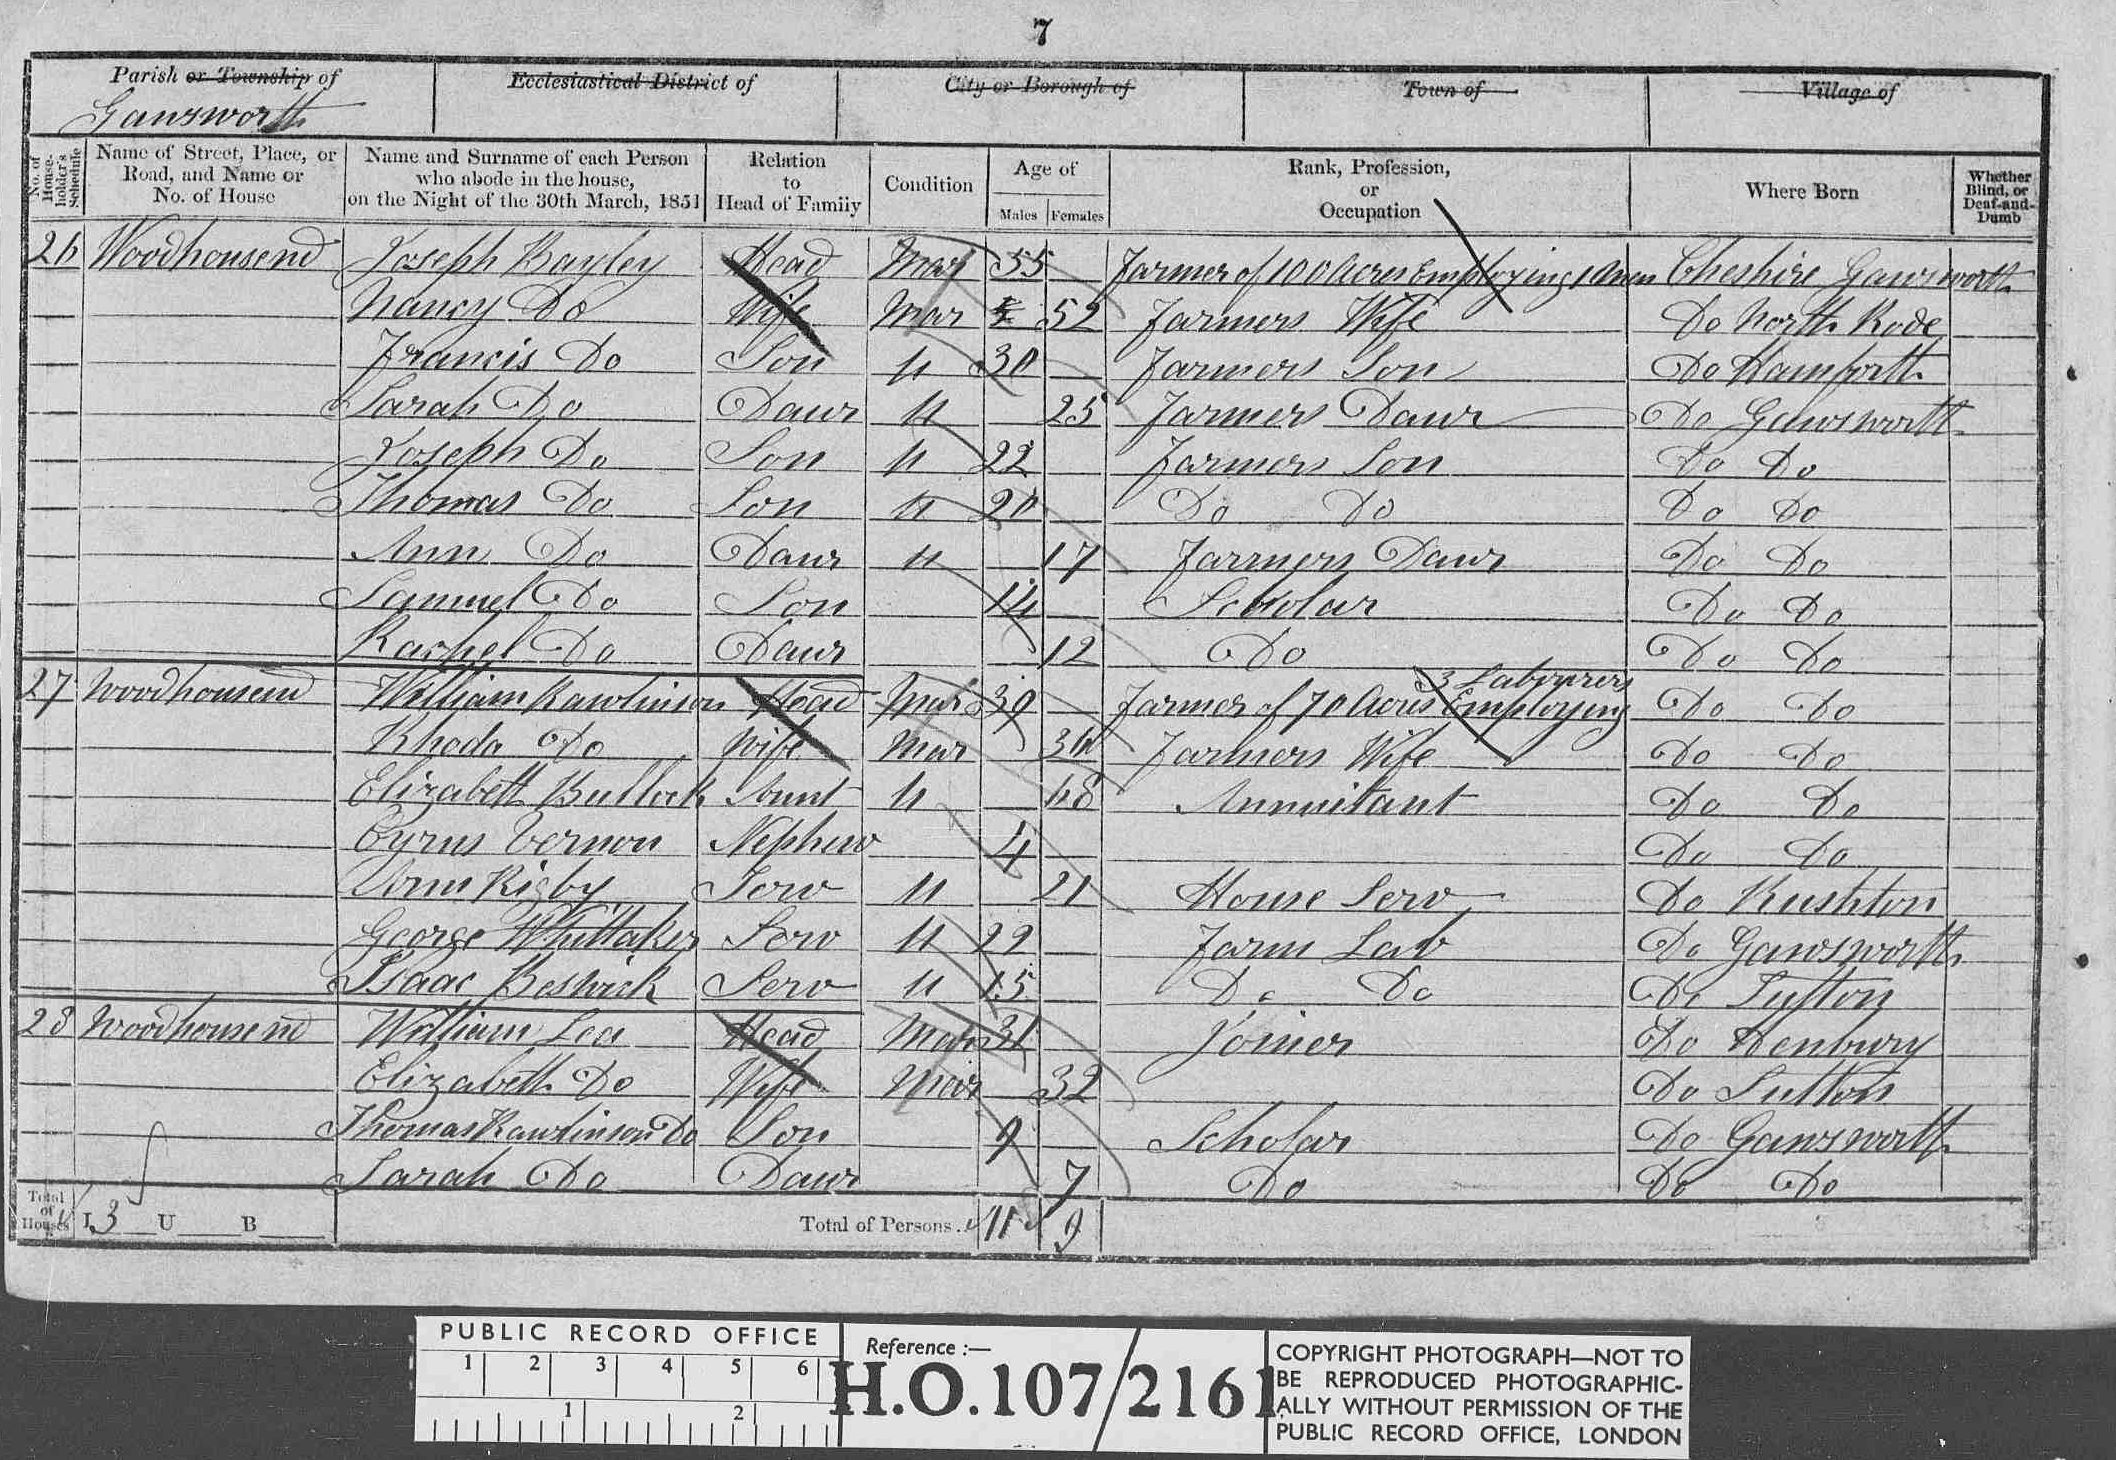 7
Parish or Township of Ecclesiastical District of City or Borough of Town of Village of
Gawsworth
No. of House-holder's Schedule Name of Street, Place, or Road, and Name or No. of House Name and Surname of each Person who abode in the house, on the Night of the 30th March, 1851 Relation to Head of Family Condition Age of Males Females Rank, Profession, or Occupation Where Born Whether Blind, or Deaf-and-Dumb
26 Woodhousend Joseph Bayley Head Mar 55 Farmer of 100 Acres Employing 1 Men Cheshire Gawsworth
Nancy Do Wife Mar 52 Farmers Wife Do North Rode
Francis Do Son U 30 Farmers Son Do
Sarah Do Daur U 25 Farmers Daur Do Gawsworth
Joseph Do Son U 22 Farmers Son Do Do
Thomas Do Son U 20 Do Do Do Do
Ann Do Daur U 17 Farmers Daur Do Do
Samuel Do Son 14 Scholar Do Do
Rachel Do Daur 12 Do Do Do
3 Labourers
27 Woodhousend William Rawlinson Head Mar 39 Farmer of 70 Acres Employing Do Do
Rhoda Do Wife Mar 36 Farmers Wife Do Do
Elizabeth Bullock Aunt U 48 Annuitant Do Do
Cyrus Vernon Nephew 4 Do Do
Ann Rigby Serv U 21 House Serv Do Rushton
George Whittaker Serv U 22 Farm Lab Do Gawsworth
Isaac Beswick Serv U 15 Do Do Do Sutton
28 Woodhousend William Lea Head Mar 31 Joiner Do Henbury
Elizabeth Do Wife Mar 32 Do Sutton
Thomas Rawlinson Do Son 9 Scholar Do Gawsworth
Sarah Do Daur 7 Do Do Do
Total of Houses I 3 U B Total of Persons 11 9
PUBLIC RECORD OFFICE
1 2 3 4 5 6
1 2
Reference :—
H.O. 107/2161
COPYRIGHT PHOTOGRAPH—NOT TO
BE REPRODUCED PHOTOGRAPHIC-
ALLY WITHOUT PERMISSION OF THE
PUBLIC RECORD OFFICE, LONDON